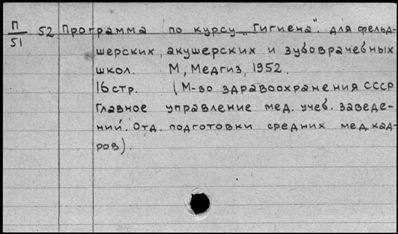 П/51 52 Программа по курсу „Гигиена" для фельд-
шерских, акушерских и зубоврачебных
школ. М, Медгиз, 1952.
16 стр. (М-во здравоохранения СССР
Главное управление мед. учеб. заведе-
ний. Отд. подготовки средних мед. кад-
ров).